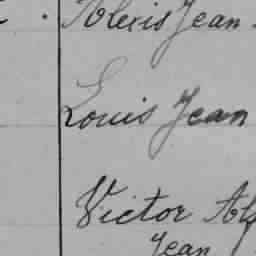 Alexis Jean
Louis Jean
Victor Al
Jean